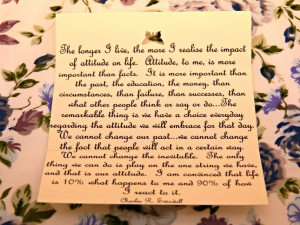 The longer I live, the more I realise the impact
of attitude on life. Attitude, to me, is more
important than facts. It is more important than
the past, the education, the money, than
circumstances, than failure, than successes, than
what other people think or say or do...The
remarkable thing is we have a choice everyday
regarding the attitude we will embrace for that day.
We cannot change our past...we cannot change
the fact that people will act in a certain way.
We cannot change the inevitable. The only
thing we can do is play on the one string we have,
and that is our attitude. I am convinced that life
is 10% what happens to me and 90% of how
I react to it.
Charles R. Swindoll